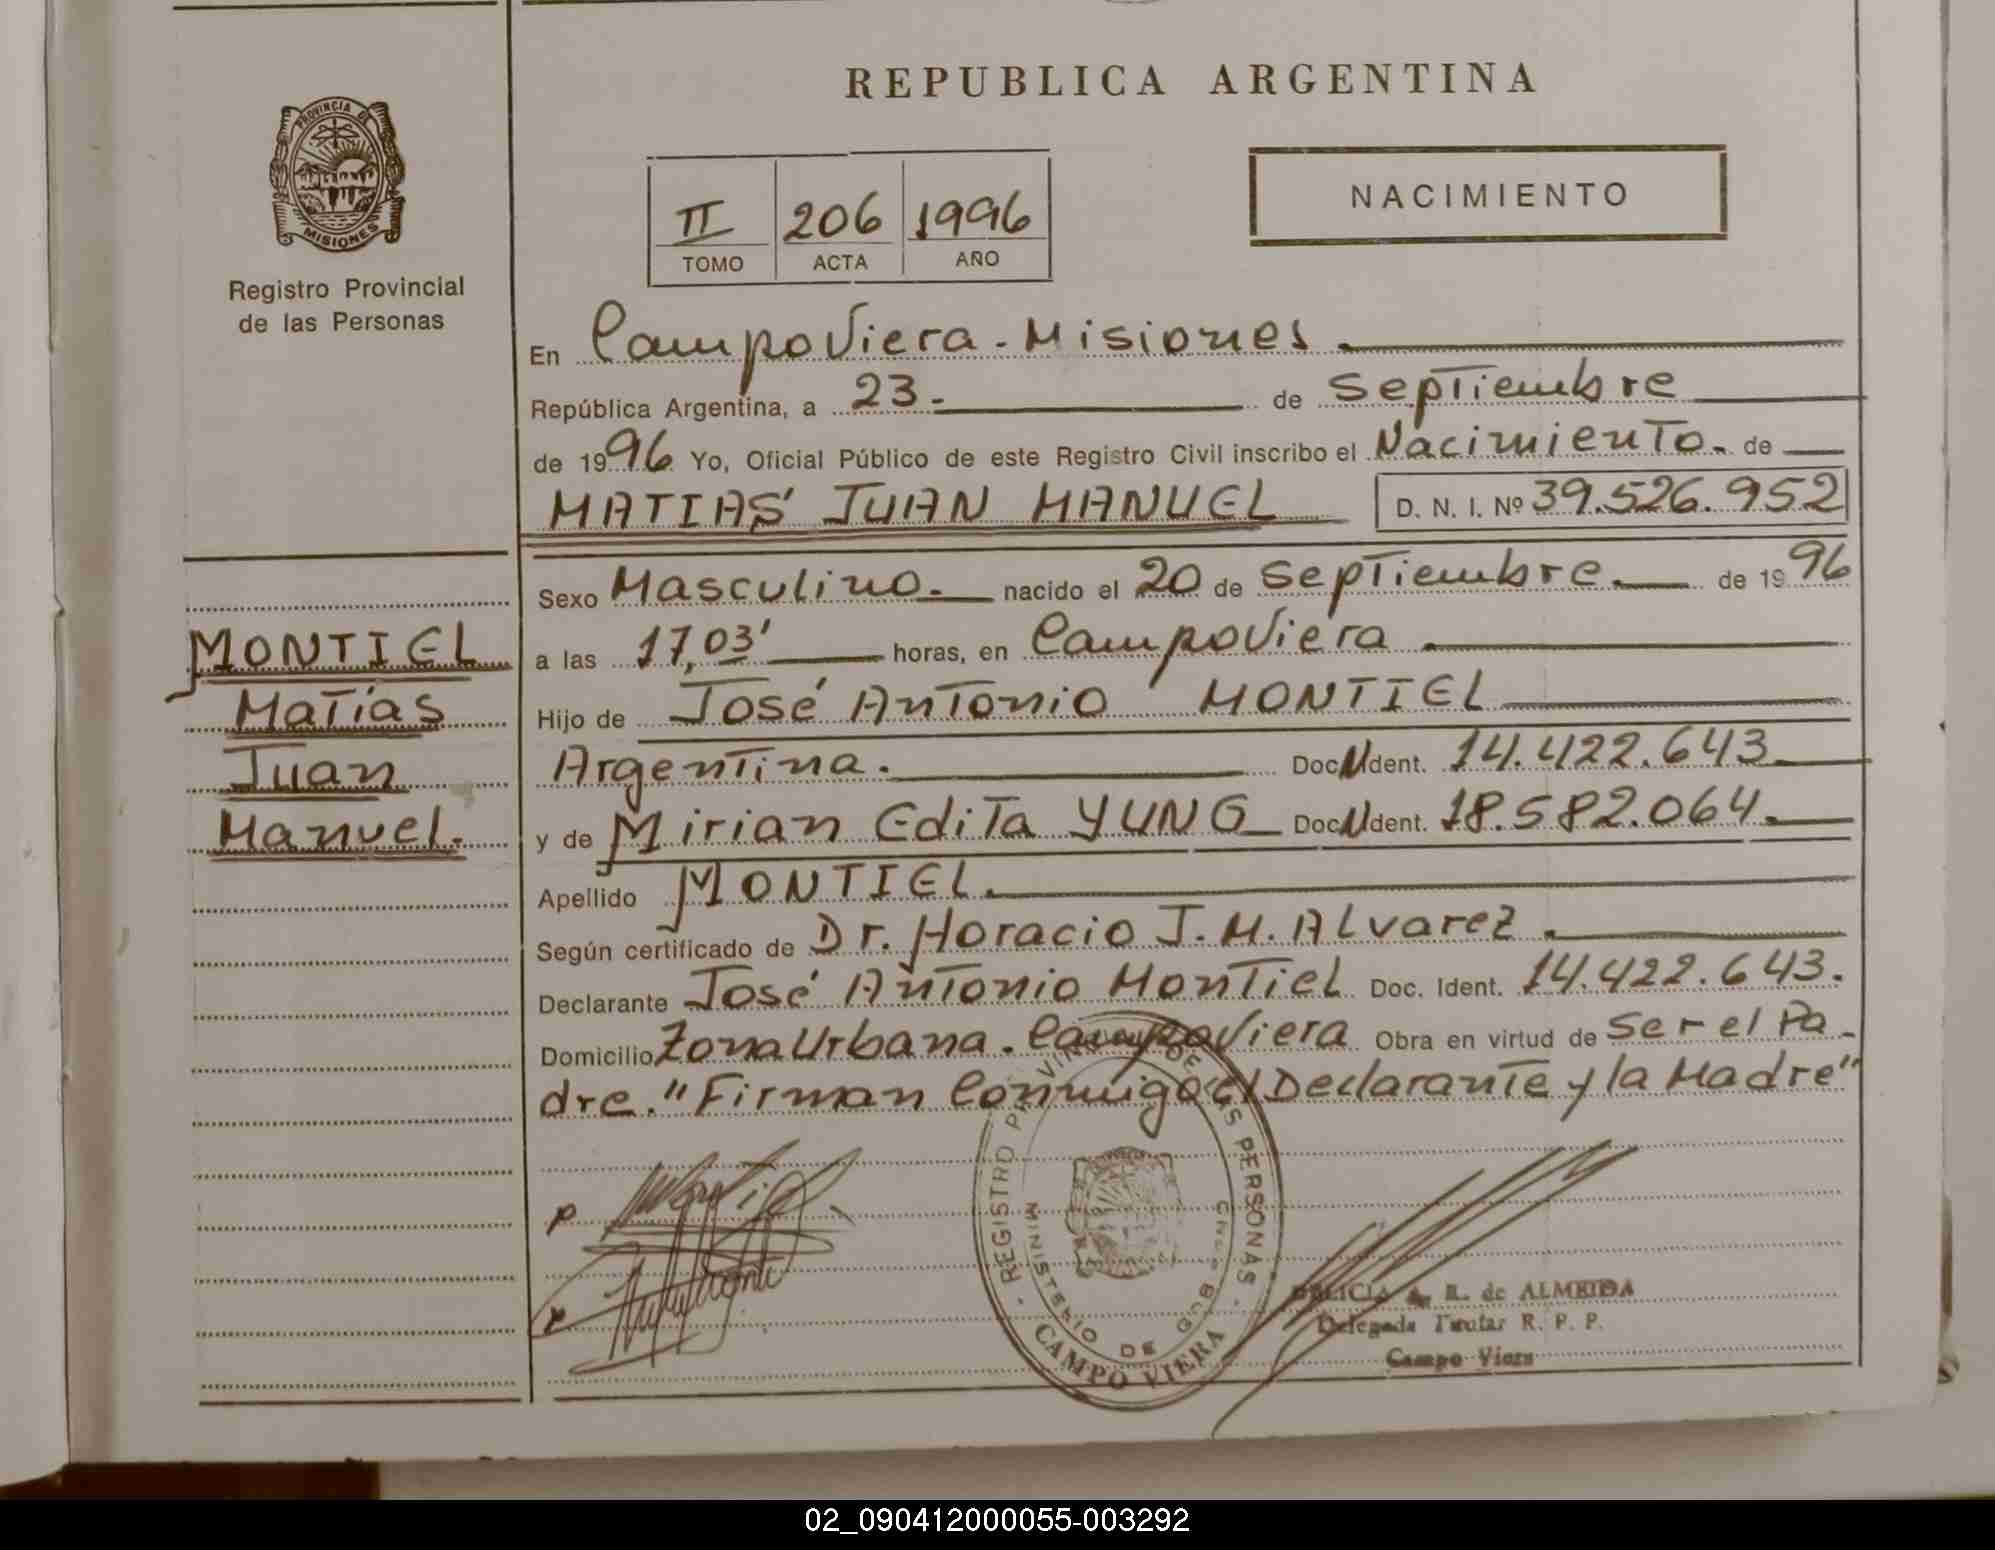 REPUBLICA ARGENTINA
PROVINCIA DE
MISIONES
Registro Provincial
de las Personas
NACIMIENTO
II 206 1996
TOMO ACTA AÑO
En Campo Viera - Misiones
República Argentina, a 23 de Septiembre
de 1996 Yo, Oficial Público de este Registro Civil inscribo el Nacimiento de
MATIAS JUAN MANUEL D. N. I. Nº 39.526.952
Sexo Masculino. nacido el 20 de Septiembre. de 1996
a las 17,03' horas, en Campo Viera
Hijo de José Antonio MONTIEL
Argentina. Doc N Ident. 14.422.643
y de Mirian Edita YUNG Doc N Ident. 18.582.064.
Apellido MONTIEL.
Según certificado de Dr. Horacio J. M. Alvarez.
Declarante José Antonio Montiel Doc. Ident. 14.422.643.
Domicilio Zona Urbana. Campo Viera Obra en virtud de Ser el Pa-
dre. "Firman Conmigo el Declarante y la Madre"
MONTIEL
Matías
Juan
Manuel.
REGISTRO PROVINCIAL DE LAS PERSONAS
MINISTERIO DE
CAMPO VIERA
de ALMEIDA
Delegada Titular R. P. P.
Campo Viera
02_090412000055-003292